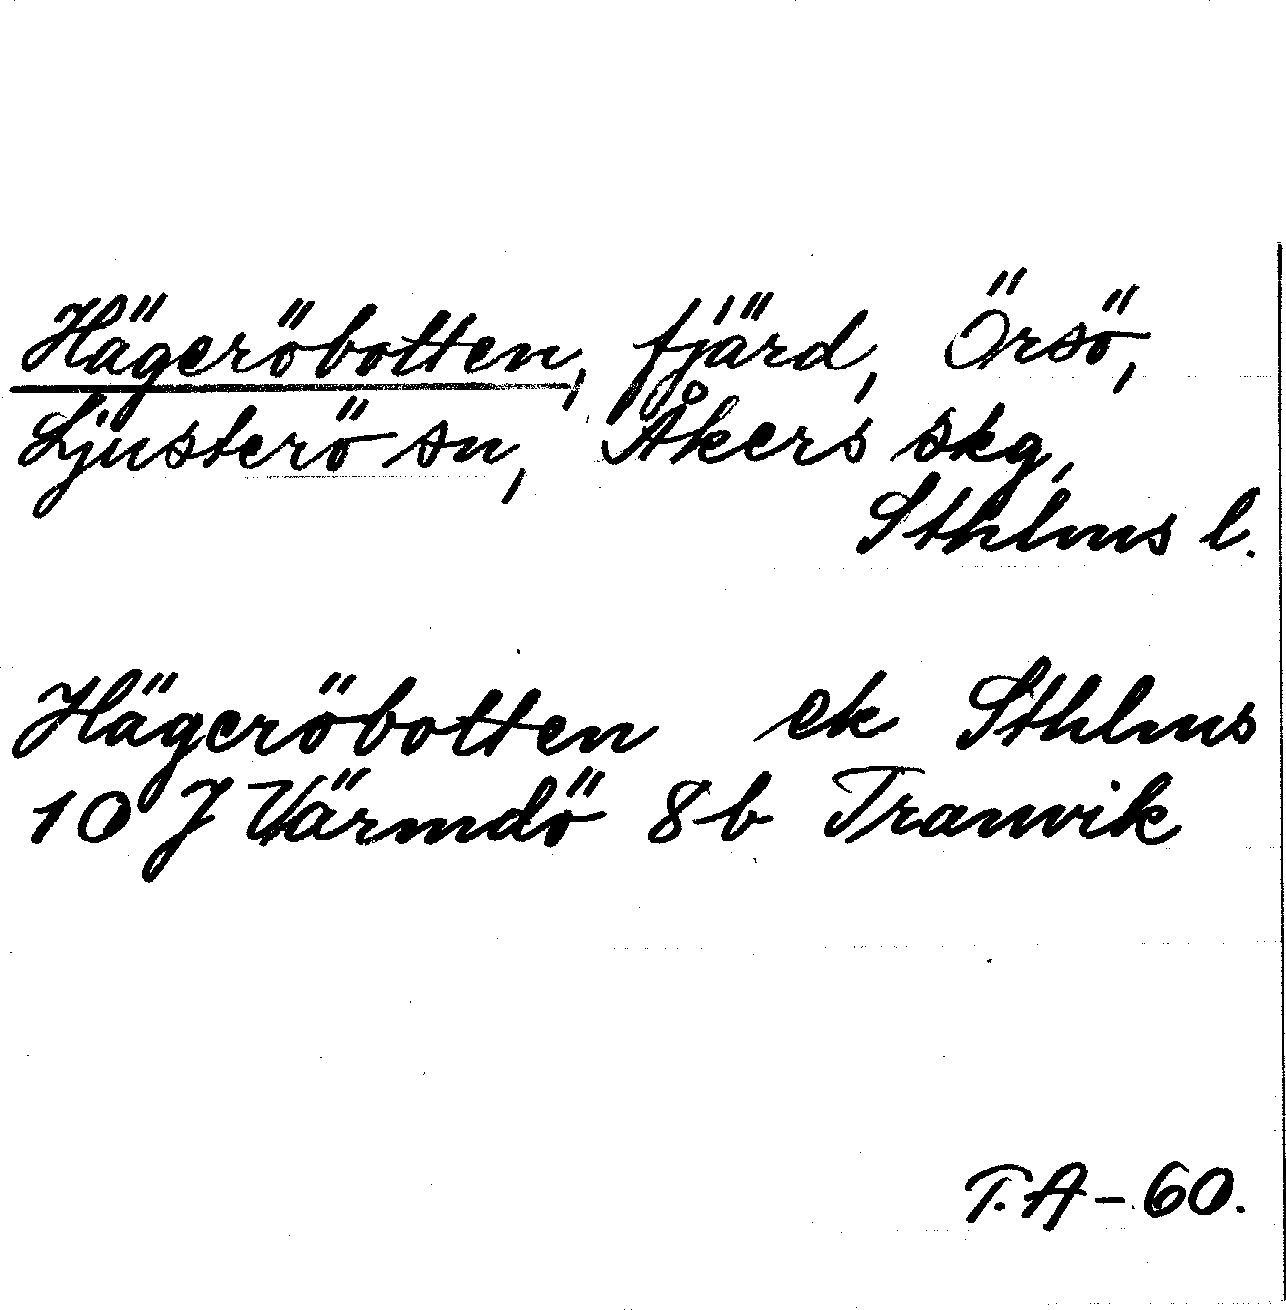 Hägeröbotten, fjärd, Örsö,
Ljusterö sn, Åkers skg,
Sthlms l.
Hägeröbotten ek Sthlms
10 J Värmdö 8b Tranvik
T.A-60.